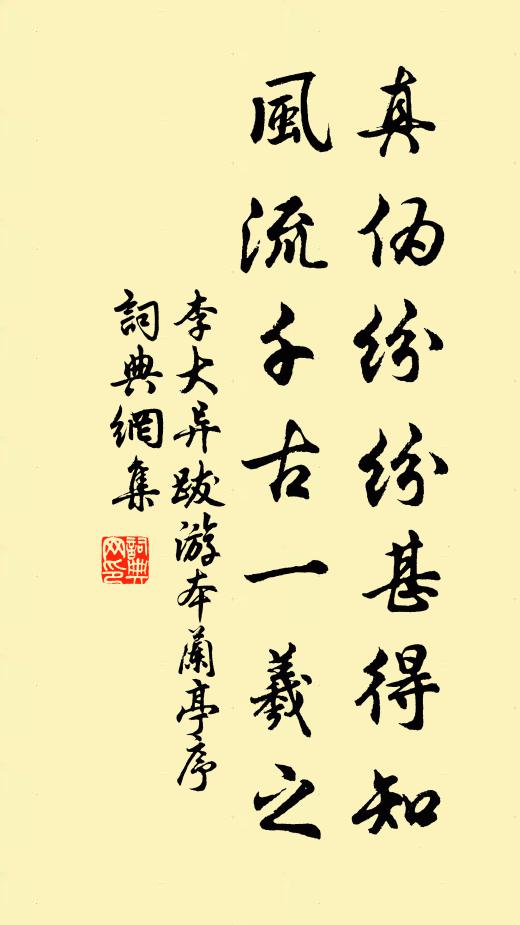 真伪纷纷甚得知
風流千古一羲之
李大异跋游本蘭亭序
詞典網集
詞典网印